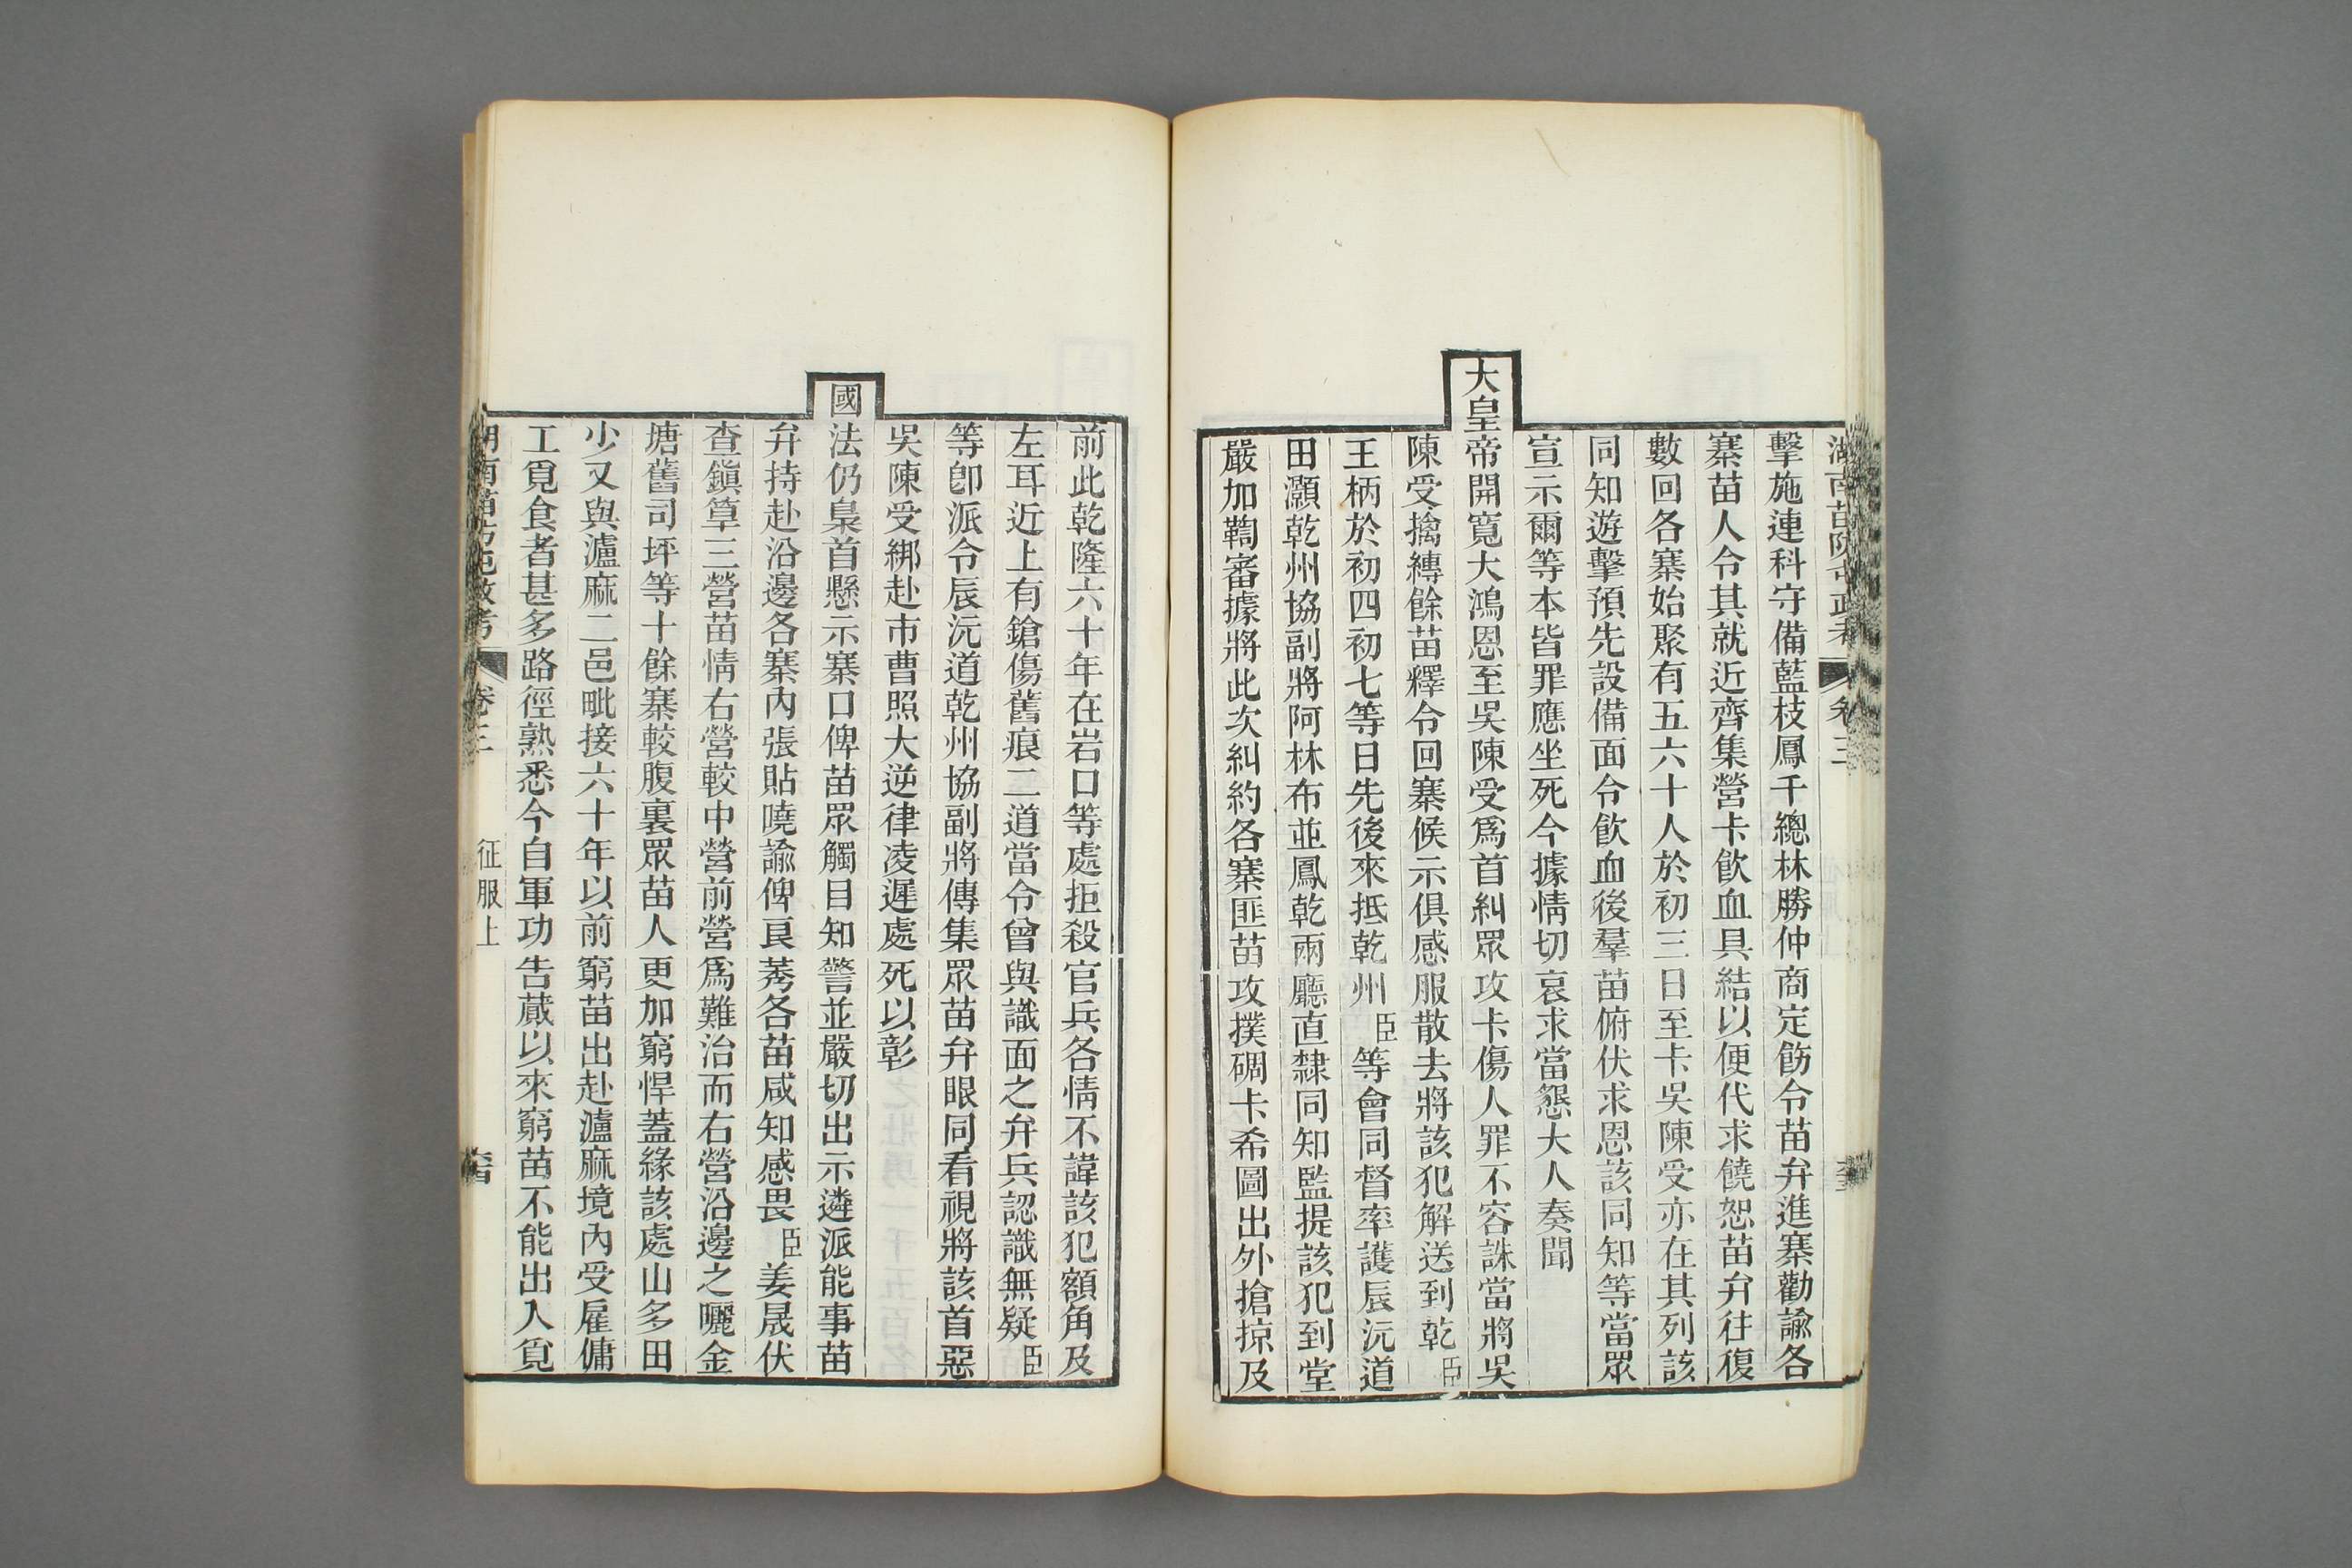 湖南苗防屯政考 卷三
擊施連科守備藍枝鳳千總林勝仲商定飭令苗弁進寨勸諭各
寨苗人令其就近齊集營卡飲血具結以便代求饒恕苗弁往復
數回各寨始聚有五六十人於初三日至卡吳陳受亦在其列該
同知遊擊預先設備面令飲血後羣苗俯伏求恩該同知等當眾
宣示爾等本皆罪應坐死今據情切哀求當懇大人奏聞
大皇帝開寬大鴻恩至吳陳受為首糾眾攻卡傷人罪不容誅當將吳
陳受擒縛餘苗釋令回寨候示俱感服散去將該犯解送到乾臣
王柄於初四初七等日先後來抵乾州臣等會同督率護辰沅道
田灝乾州協副將阿林布並鳳乾兩廳直隸同知監提該犯到堂
嚴加鞫審據將此次糾約各寨匪苗攻撲碉卡希圖出外搶掠及
前此乾隆六十年在岩口等處拒殺官兵各情不諱該犯額角及
左耳近上有鎗傷舊痕二道當令曾與識面之弁兵認識無疑臣
等卽派令辰沅道乾州協副將傳集眾苗弁眼同看視將該首惡
吳陳受綁赴市曹照大逆律凌遲處死以彰
國法仍梟首懸示寨口俾苗眾觸目知警並嚴切出示遴派能事苗
弁持赴沿邊各寨內張貼曉諭俾良莠各苗咸知感畏臣姜晟伏
查鎭筸三營苗情右營較中營前營為難治而右營沿邊之曬金
塘舊司坪等十餘寨較腹裏眾苗人更加窮悍蓋緣該處山多田
少又與瀘麻二邑毗接六十年以前窮苗出赴瀘麻境內受雇傭
工覓食者甚多路徑熟悉今自軍功告蕆以來窮苗不能出入覓
湖南苗防屯政考 卷三 征服上